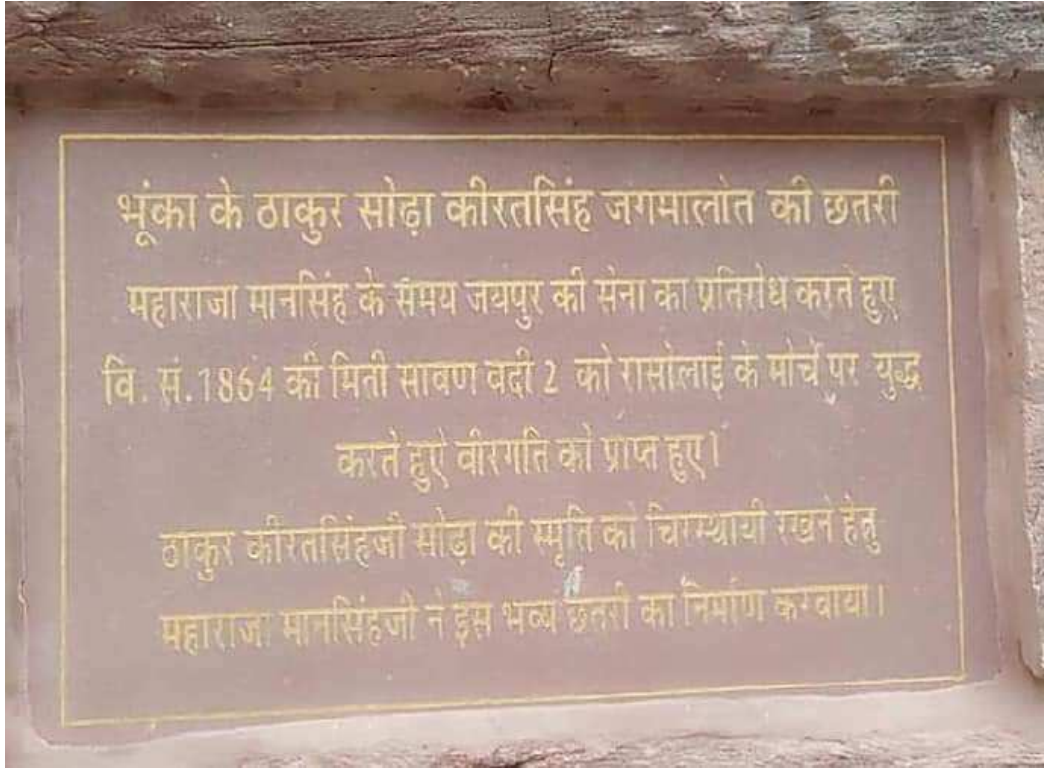 भूंका के ठाकुर सोढ़ा कीरतसिंह जगमालोत की छतरी
महाराजा मानसिंह के समय जयपुर की सेना का प्रतिरोध करते हुए
वि. सं. 1864 की मिती सावण वदी 2 को रासोलाई के मोर्चे पर युद्ध
करते हुऐ वीरगति को प्राप्त हुए।
ठाकुर कीरतसिंहजी सोढ़ा की स्मृति को चिरस्थायी रखने हेतु
महाराजा मानसिंहजी ने इस भव्य छतरी का निर्माण करवाया।